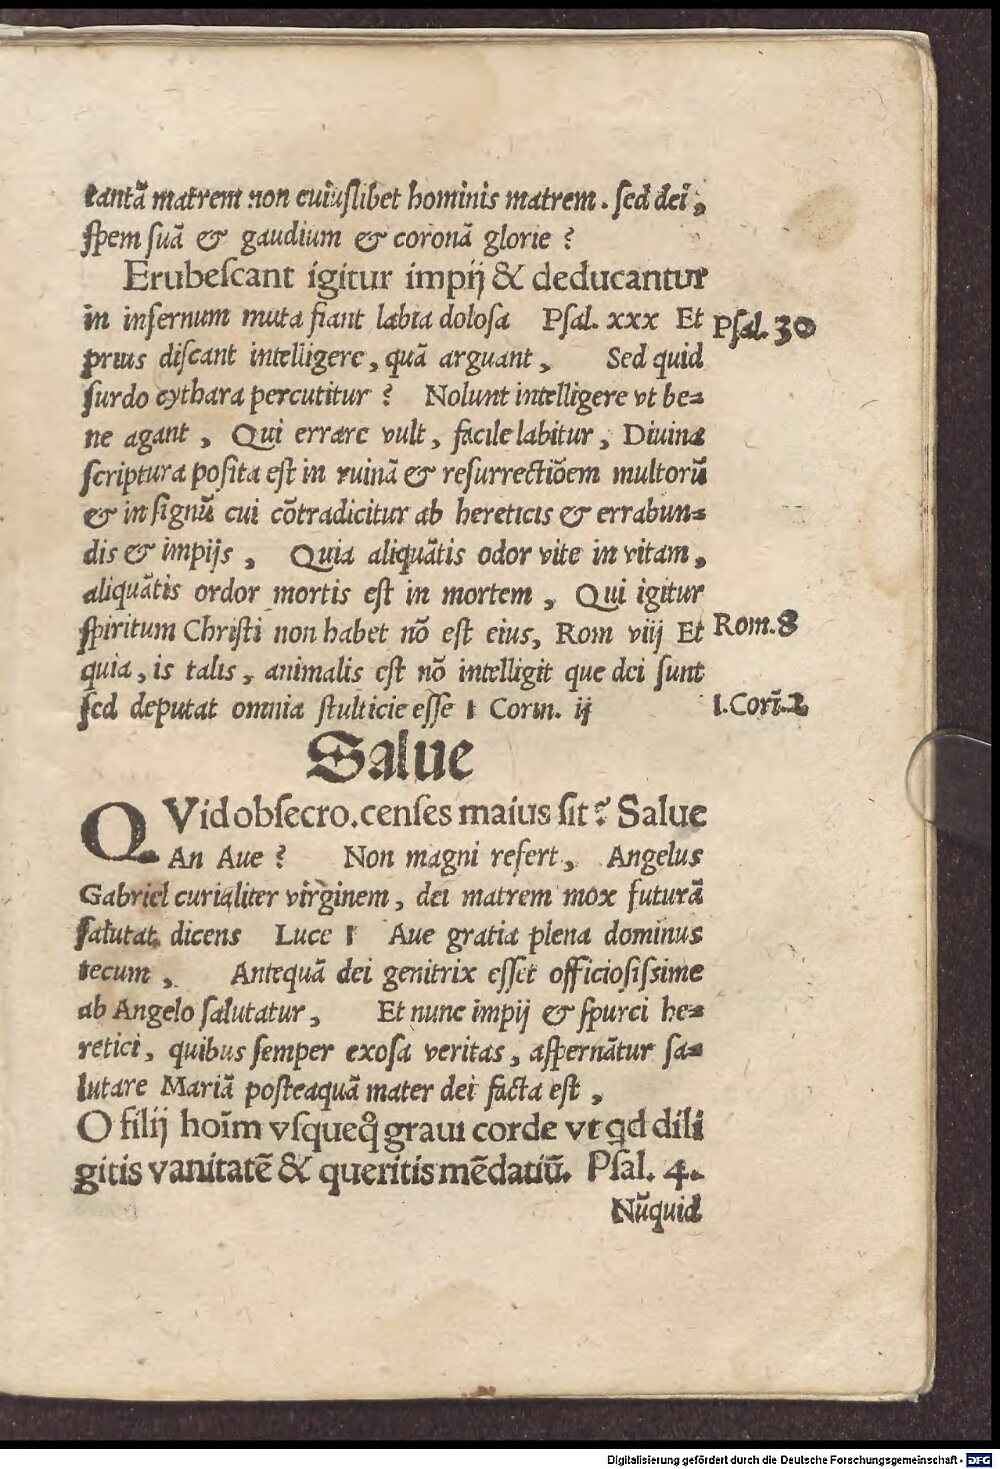 tantā matrem non cuiuſlibet hominis matrem. ſed dei,
ſpem ſuā & gaudium & coronā glorie ?
Erubeſcant igitur impij & deducantur
in infernum muta fiant labia doloſa Pſal. xxx Et
Pſal. 30
prius diſcant intelligere, quā arguant, Sed quid
ſurdo cythara percutitur ? Nolunt intelligere vt be=
ne agant, Qui errare vult, facile labitur, Diuina
ſcriptura poſita eſt in ruinā & reſurrectiōem multorū
& in ſignū cui cōtradicitur ab hereticis & errabun=
dis & impijs, Quia aliquātis odor vite in vitam,
aliquātis ordor mortis eſt in mortem, Qui igitur
ſpiritum Chriſti non habet nō eſt eius, Rom viij Et
Rom. 8
quia, is talis, animalis eſt nō intelligit que dei ſunt
ſed deputat omnia ſtulticie eſſe 1 Corin. ij
1. Cori̅. 2
Salue
QVid obſecro. cenſes maius ſit ? Salue
An Aue ? Non magni refert, Angelus
Gabriel curialiter virginem, dei matrem mox futurā
ſalutat, dicens Luce 1 Aue gratia plena dominus
tecum, Antequā dei genitrix eſſet officioſiſsime
ab Angelo ſalutatur, Et nunc impij & ſpurci he=
retici, quibus ſemper exoſa veritas, aſpernātur ſa=
lutare Mariā poſteaquā mater dei facta eſt,
O filij hoīm vſqueq̊ graui corde vt qd dili
gitis vanitatē & queritis mēdatiū. Pſal. 4.
Nūquid
Digitalisierung gefördert durch die Deutsche Forschungsgemeinschaft - DFG